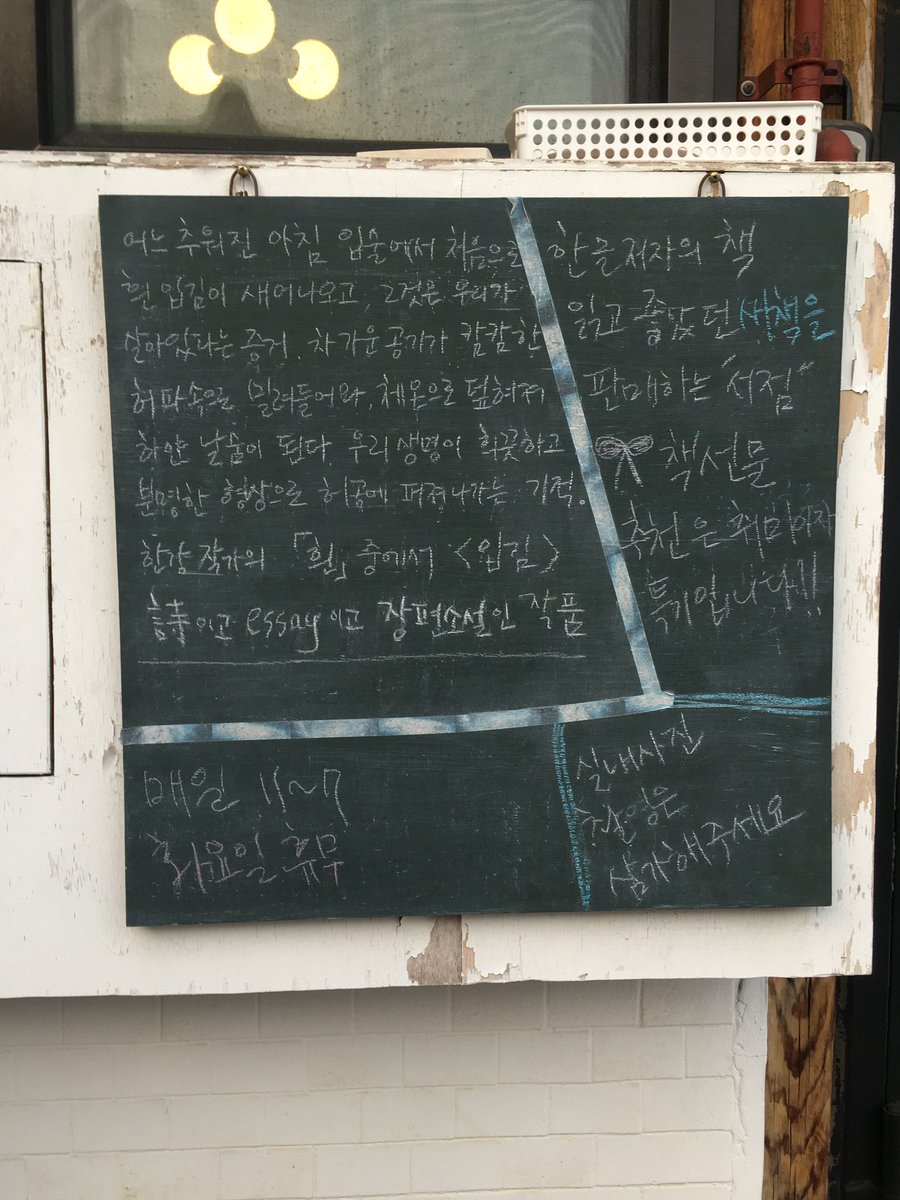 어느 추워진 아침 입술에서 처음으로
흰 입김이 새어나오고, 그것은 우리가
살아있다는 증거. 차가운 공기가 캄캄한
허파속으로 밀려들어와, 체온으로 덮혀져
하얀 날숨이 된다. 우리 생명이 희끗하고
분명한 형상으로 허공에 퍼져나가는 기적.
한강 작가의 「흰」 중에서 <입김>
詩이고 essay이고 장편소설인 작품
한글저자의 책
읽고 좋았던 새책을
판매하는 "서점"
책선물
추천은 취미이자
특기입니다!!
매일 11~7
화요일 휴무
실내사진
촬영은
삼가해주세요